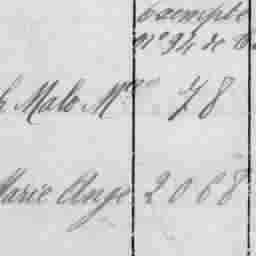 Exempte
n° 94 de
Malo M^me 78
Marie Ange 2068